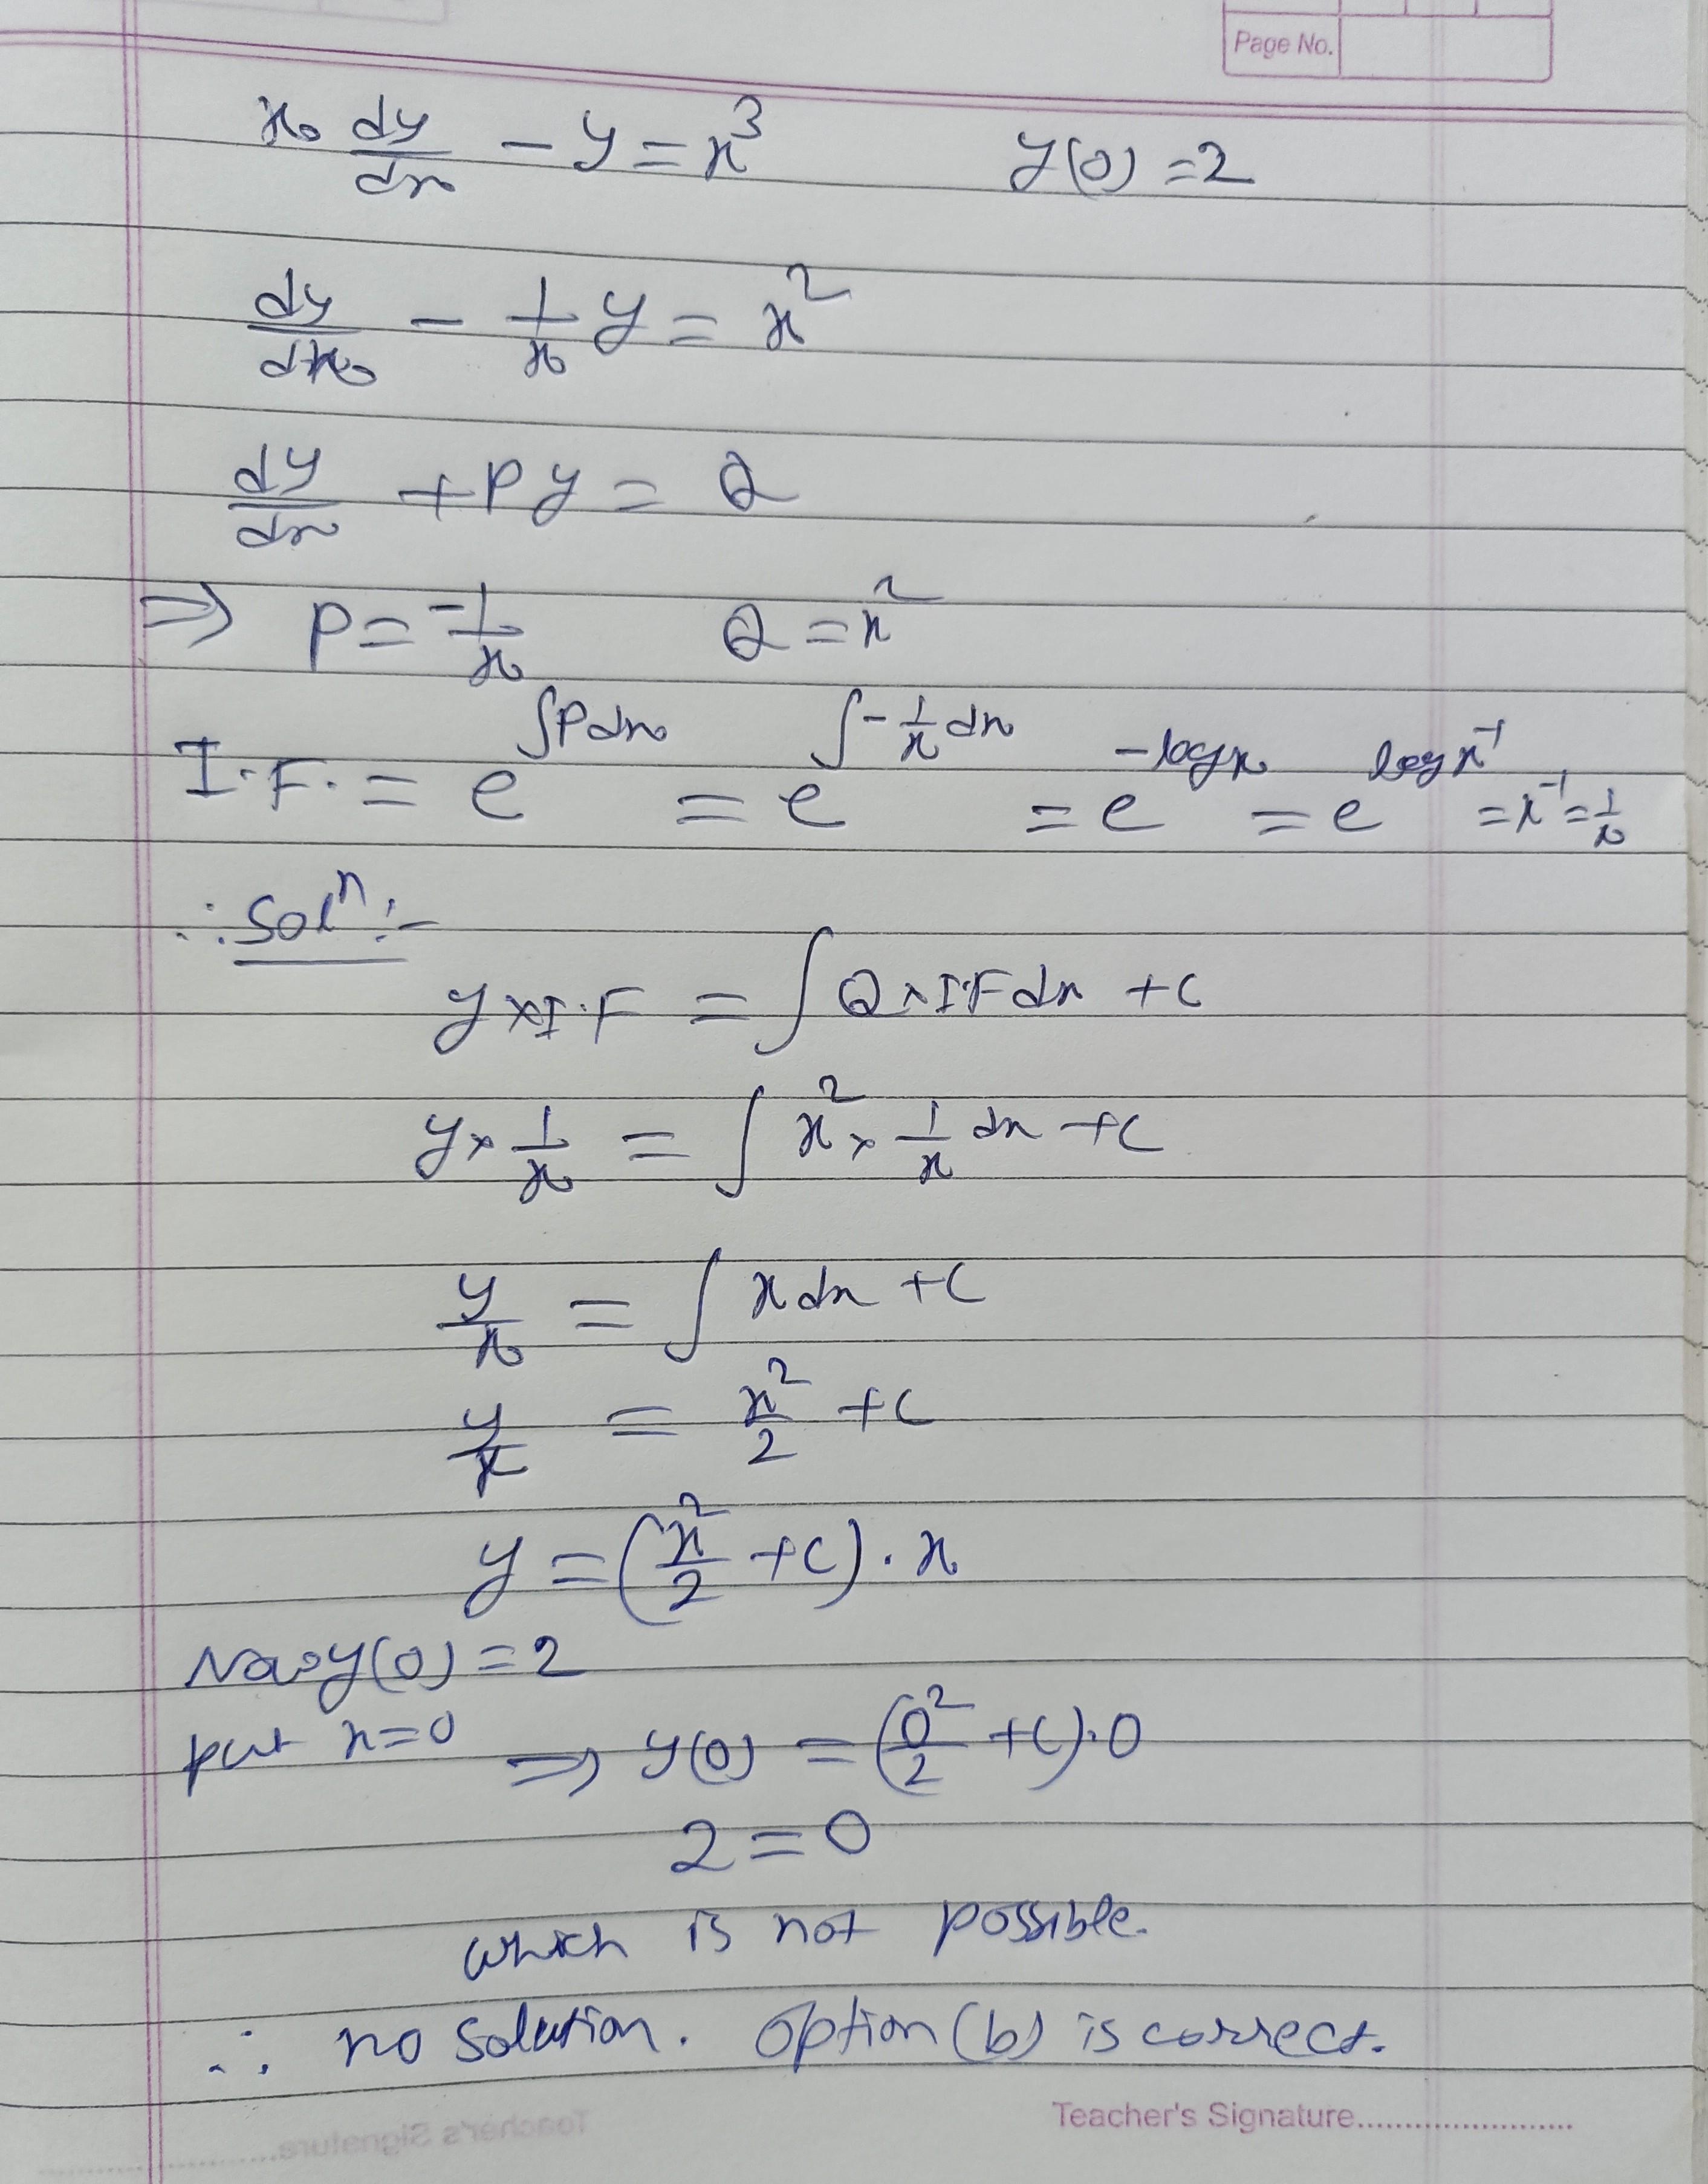 Page No.
x dy/dx - y = x³ y(0) = 2
dy/dx - 1/x y = x²
dy/dx + Py = Q
⇒ P = -1/x Q = x²
I.F. = e^∫Pdx = e^∫-1/x dx = e^-logx = e^logx⁻¹ = x⁻¹ = 1/x
∴ Solⁿ :-
y×I.F = ∫Q×I.F dx + C
y × 1/x = ∫x² × 1/x dx + C
y/x = ∫x dx + C
y/x = x²/2 + C
y = (x²/2 + C) . x
Now y(0) = 2
put x=0 ⇒ y(0) = (0²/2 + C).0
2 = 0
which is not possible.
∴ no solution. Option (b) is correct.
Teacher's Signature..........................